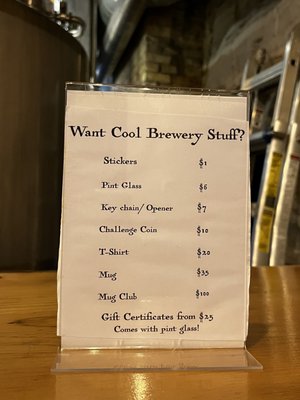 Want Cool Brewery Stuff?
Stickers $1
Pint Glass $6
Key chain/ Opener $7
Challenge Coin $10
T-Shirt $20
Mug $35
Mug Club $100
Gift Certificates from $25
Comes with pint glass!